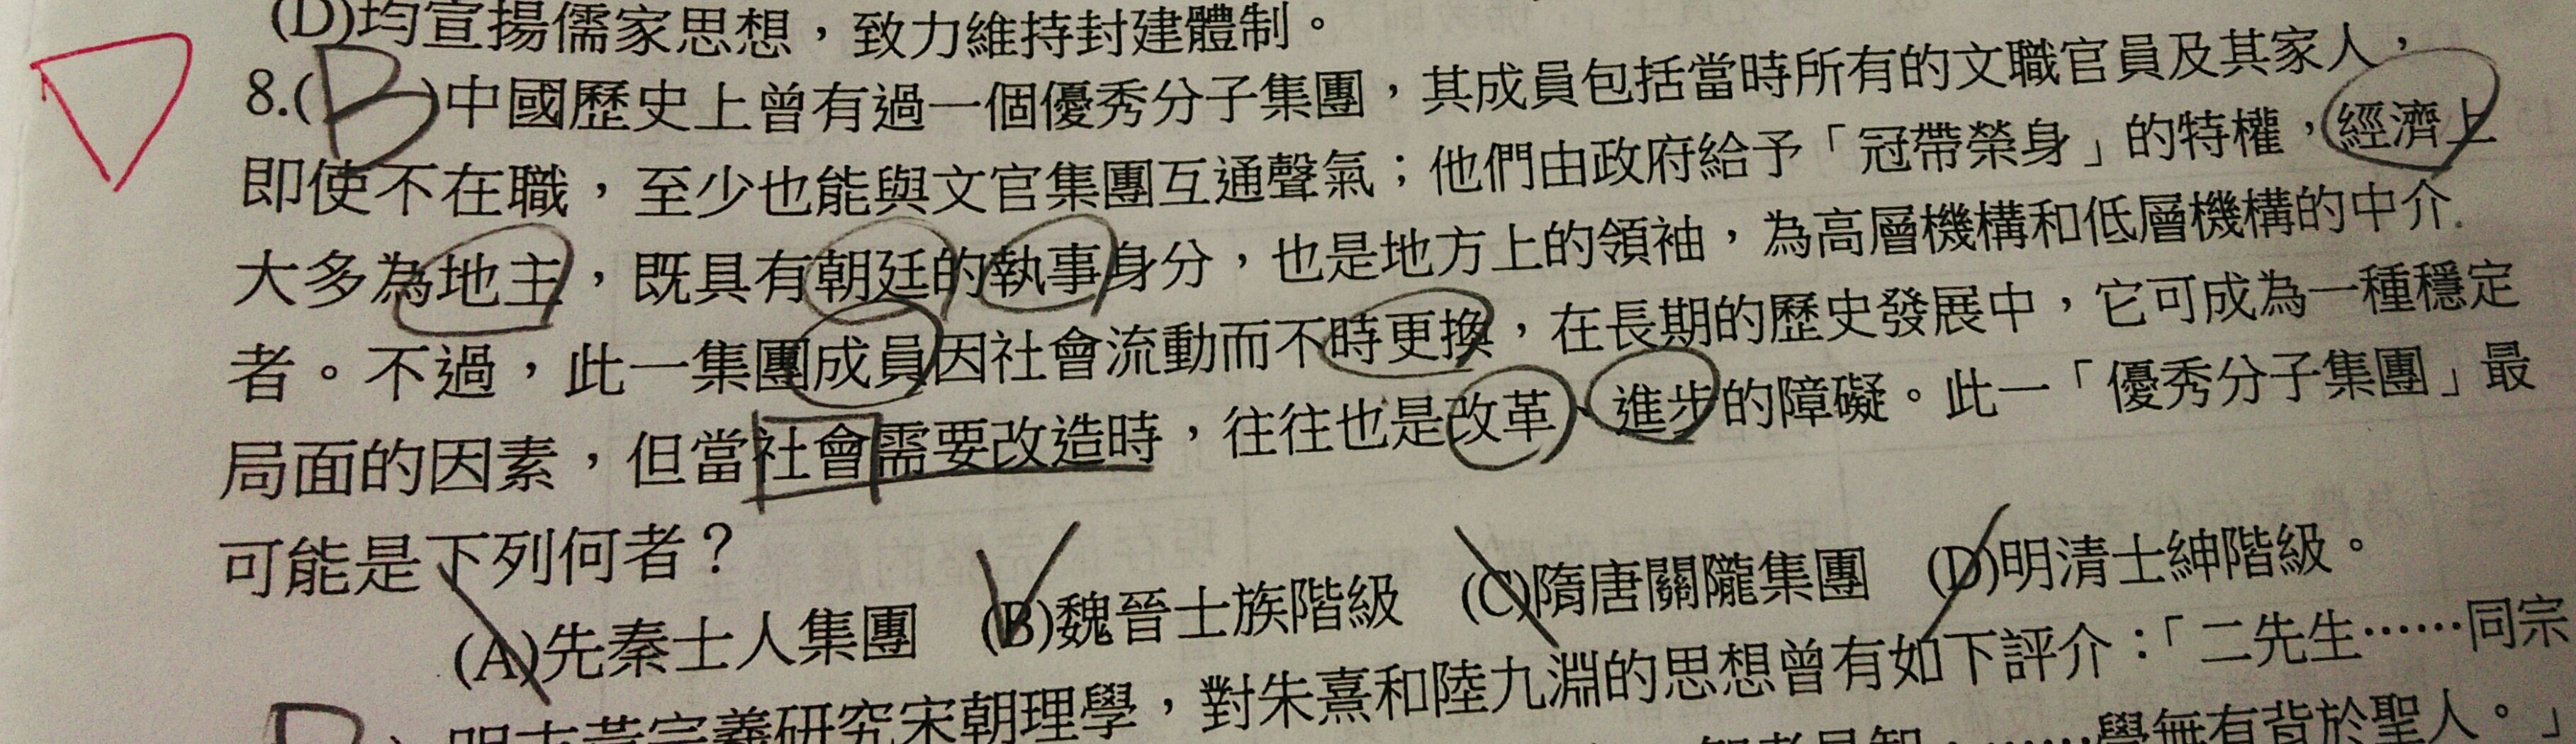 (D)均宣揚儒家思想，致力維持封建體制。
8.(B)中國歷史上曾有過一個優秀分子集團，其成員包括當時所有的文職官員及其家人，
即使不在職，至少也能與文官集團互通聲氣；他們由政府給予「冠帶榮身」的特權，經濟上
大多為地主，既具有朝廷的執事身分，也是地方上的領袖，為高層機構和低層機構的中介
者。不過，此一集團成員因社會流動而不時更換，在長期的歷史發展中，它可成為一種穩定
局面的因素，但當社會需要改造時，往往也是改革、進步的障礙。此一「優秀分子集團」最
可能是下列何者？
(A)先秦士人集團 (B)魏晉士族階級 (C)隋唐關隴集團 (D)明清士紳階級。
明末黃宗羲研究宋朝理學，對朱熹和陸九淵的思想曾有如下評介：「二先生……同宗
……學無有背於聖人。」